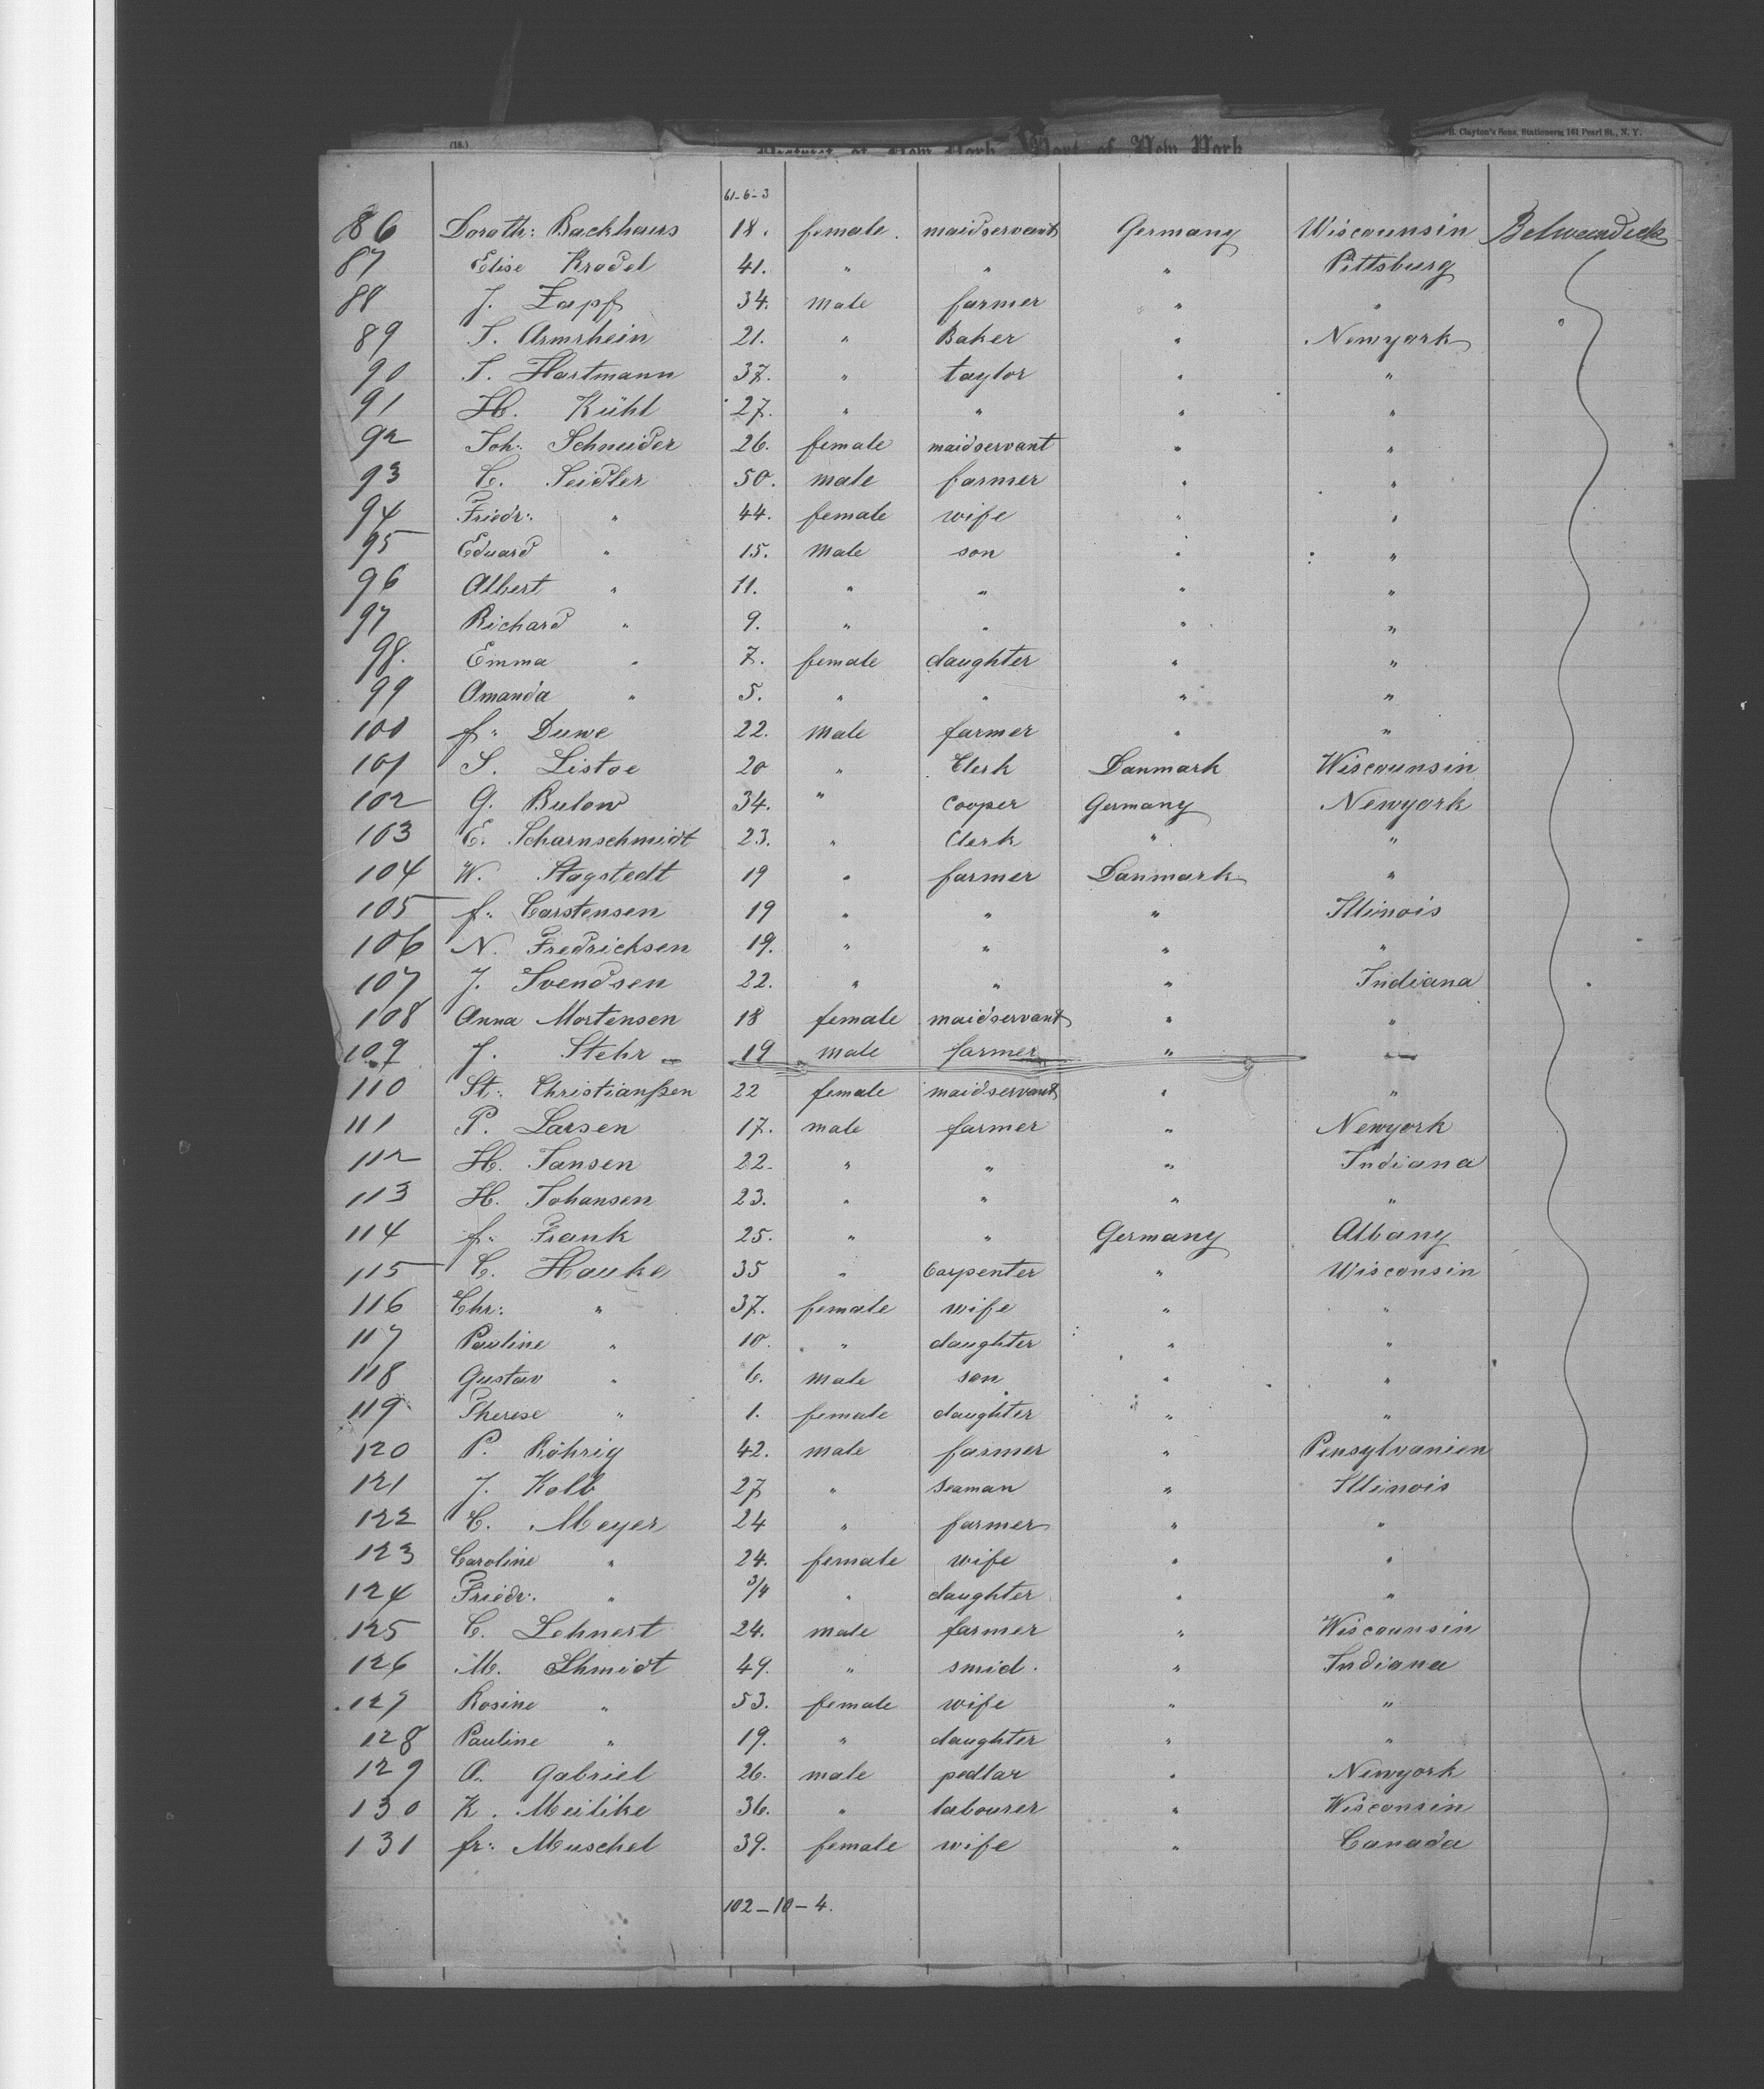 (18.)
District of New York Port of New York
B. Clayton's Sons, Stationers, 161 Pearl St., N. Y.
61-6-3
86 Doroth: Backhaus 18. female. maidservant Germany Wiscounsin Betweendeck
87 Elise Krodel 41. " " " Pittsburg
88 J. Zapf 34. male farmer " "
89 J. Armrhein 21. " Baker " Newyork
90 J. Hartmann 37. " taylor " "
91 H. Kühl 27. " " " "
92 Joh: Schneider 26. female maidservant " "
93 C. Seidler 50. male farmer " "
94 Friedr: " 44. female wife " "
95 Eduard " 15. male son " "
96 Albert " 11. " " " "
97 Richard " 9. " " " "
98. Emma " 7. female daughter " "
99 Amanda " 5. " " " "
100 f: Duwe 22. male farmer " "
101 S. Listoe 20 " Clerk Danmark Wiscounsin
102 G. Bulow 34. " Cooper Germany Newyork
103 E. Scharnschmidt 23. " Clerk " "
104 W. Stagstedt 19 " farmer Danmark "
105 f: Carstensen 19 " " " Illinois
106 N. Fredrichsen 19. " " " "
107 J. Svendsen 22. " " " Indiana
108 Anna Mortensen 18 female maidservant " "
109 J. Stehr 19 male farmer " "
110 St: Christianßen 22 female maidservant " "
111 P. Larsen 17. male farmer " Newyork
112 H. Jansen 22. " " " Indiana
113 H. Johansen 23. " " " "
114 f: Frank 25. " " Germany Albany
115 C. Hauke 35 " Carpenter " Wisconsin
116 Chr: " 37. female wife " "
117 Pauline " 10. " daughter " "
118 Gustav " 6. male son " "
119 Therese " 1. female daughter " "
120 P. Röhrig 42. male farmer " Pensylvanien
121 J. Kolb 27 " Seaman " Illinois
122 C. Meyer 24 " farmer " "
123 Caroline " 24. female wife " "
124 Friedr: " 3/4 " daughter " "
125 C. Lehnert 24. male farmer " Wiscounsin
126 M. Shmidt 49. " smid. " Indiana
127 Rosine " 53. female wife " "
128 Pauline " 19. " daughter " "
129 A. Gabriel 26. male pedlar " Newyork
130 K. Meilike 36. " labourer " Wisconsin
131 fr: Muschel 39. female wife " Canada
102-10-4.